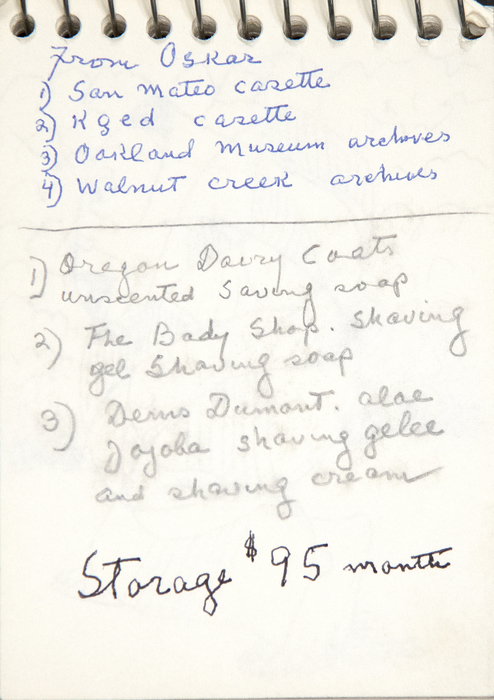 From Oskar
1) San Mateo casette
2) Kqed casette
3) Oakland Museum archives
4) Walnut creek archives
1) Oregon Dairy Coats
unscented Saving soap
2) The Body Shop. Shaving
gel Shaving soap
3) Denis Dumont. aloe
Jojoba shaving gelee
and shaving cream
Storage $95 month